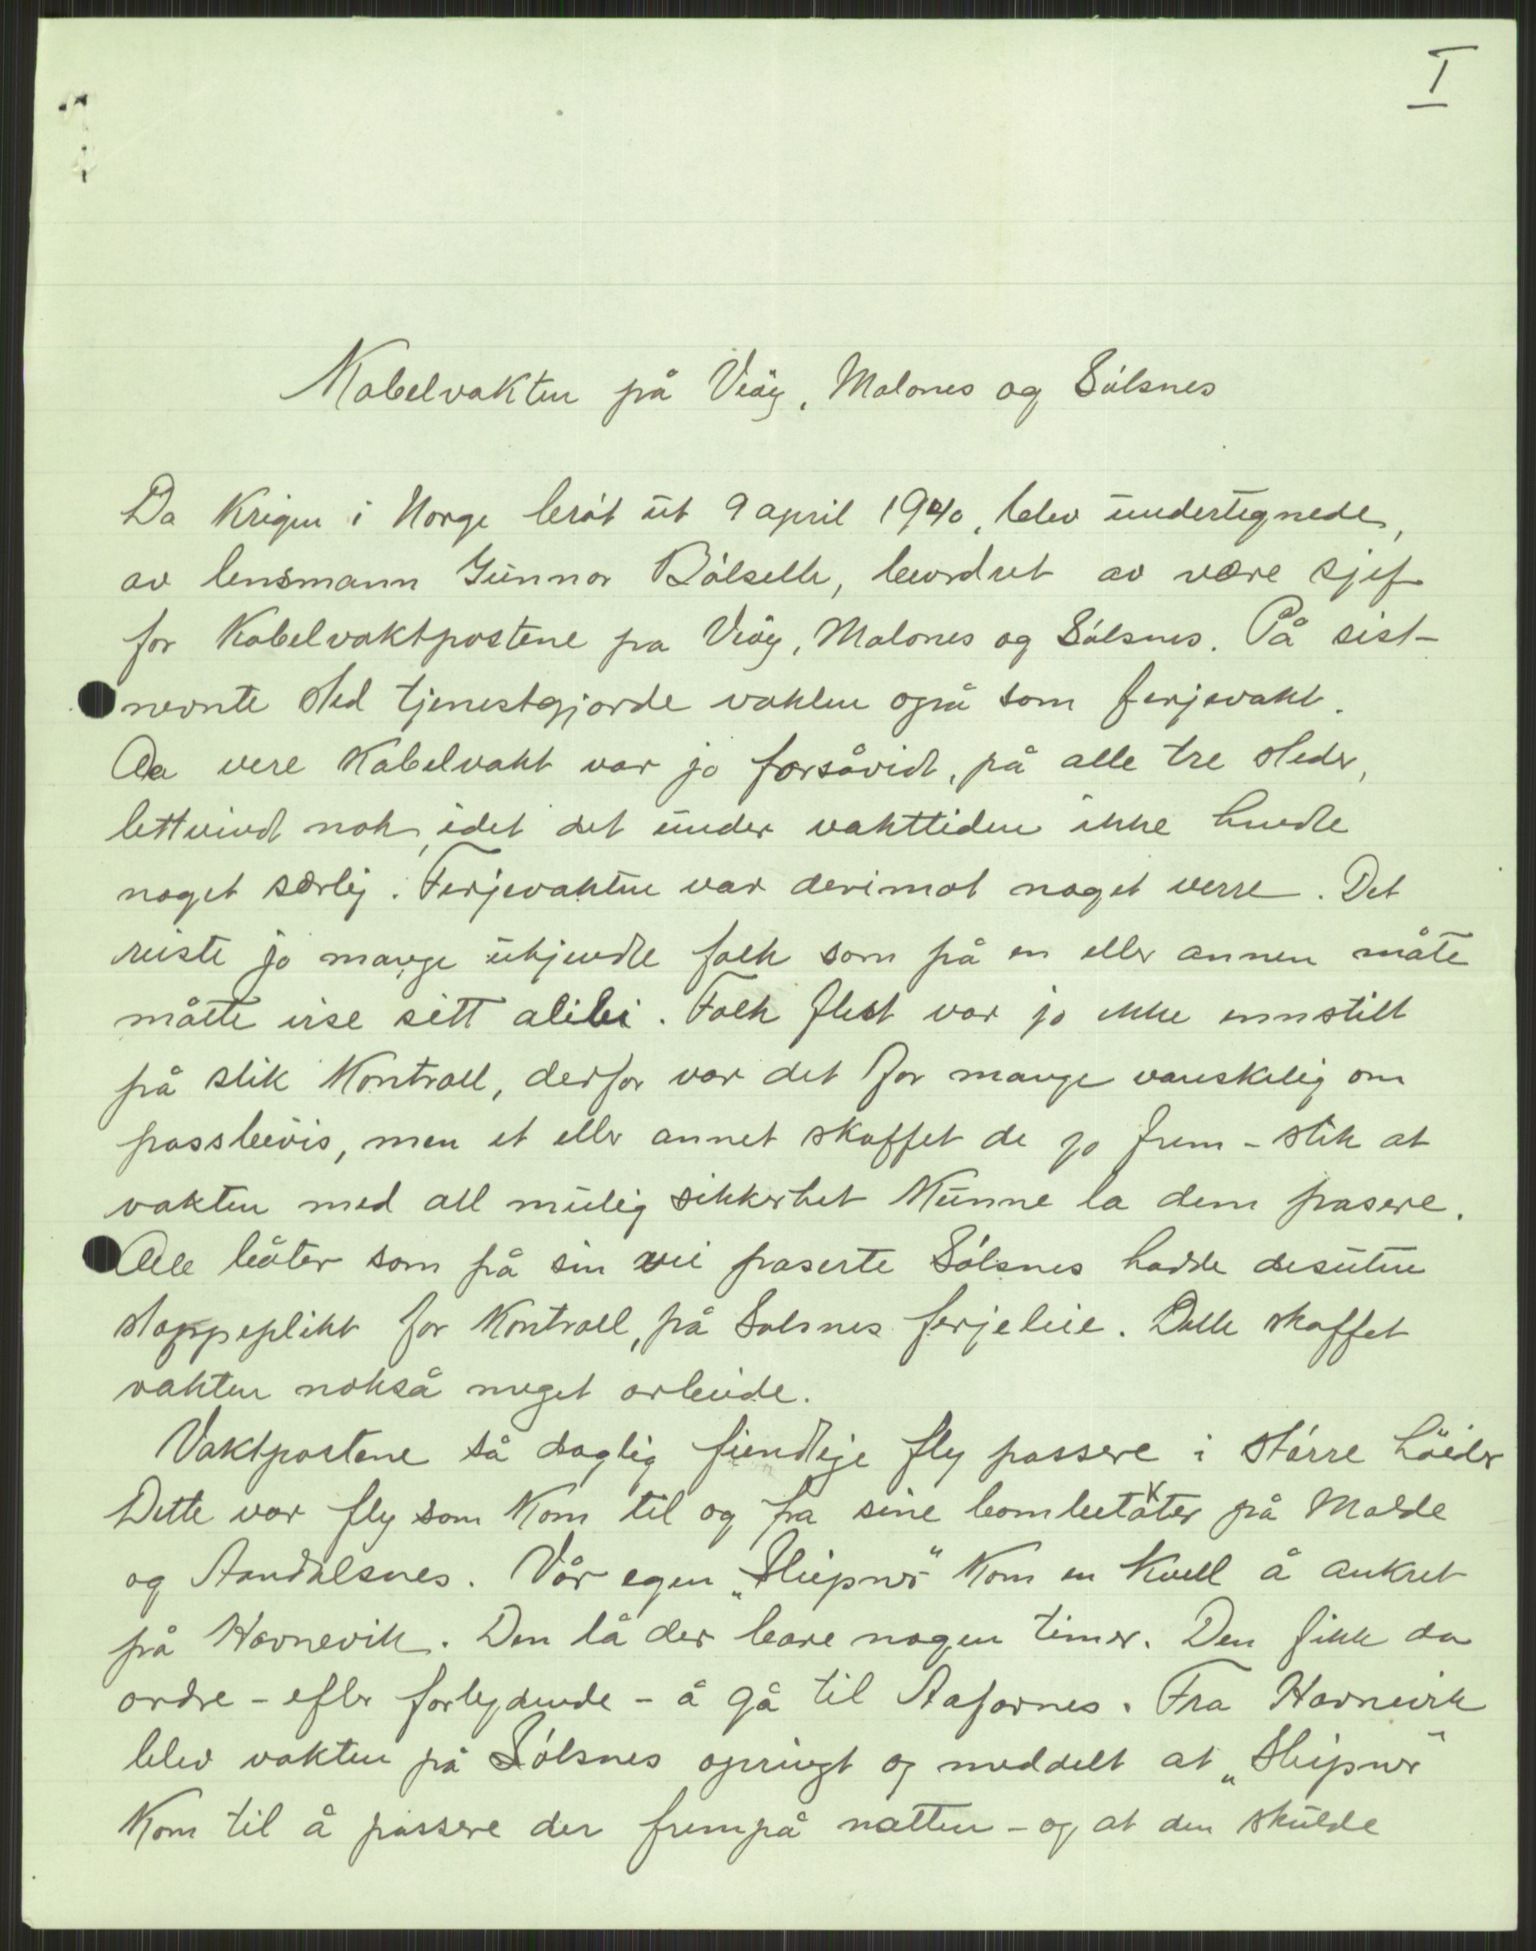 I
Kabelvakten på Veöy, Malones og Sólsnes
Da Krigen i Norge bröt üt 9 april 1940, blev ündertegnede,
av lensmann Günnar Bólseth, beordret av være sjef
for Kabelvaktpostene pa Veöy, Malones og Sólsnes. På sist-
nevnte sted tjenestgjorde vakten også som ferjevakt.
Aa vere Kabelvakt var jo forsåvidt, på alle tre steder,
lettvindt nok, idet det ünder vakttiden ikke hendte
noget særlig. Ferjevakten var derimot noget verre. Det
reiste jo mange ükjendte folk som på en eller annen måte
måtte vise sitt alibi. Folk flest var jo ikke ennstilt
på slik Kontroll, derfor var det for mange vanskelig om
passbevis, men et eller annet skaffet de jo frem - slik at
vakten med all mülig sikkerhet Künne la dem pasere.
Alle båter som på sin vei paserte Sólsnes hadde desüten
stoppeplikt for Kontroll, på Solsnes ferjeleie. Dette skaffet
vakten nokså meget arbeide.
Vaktpostene så daglig fiendtlige fly passere i större höider
Dette var fly som Kom til og fra sine bombetokter på Molde
og Aandalsnes. Vår egen „Sleipner" Kom en Kvell å ankret
på Havnevik. Den lå der bare nogen timer. Den fikk da
ordre - efter forlydende - å gå til Aafarnes. Fra Havnevik
blev vakten på Sólsnes opringt og meddelt at „Sleipner"
Kom til å passere der frempå natten - og at den skülde